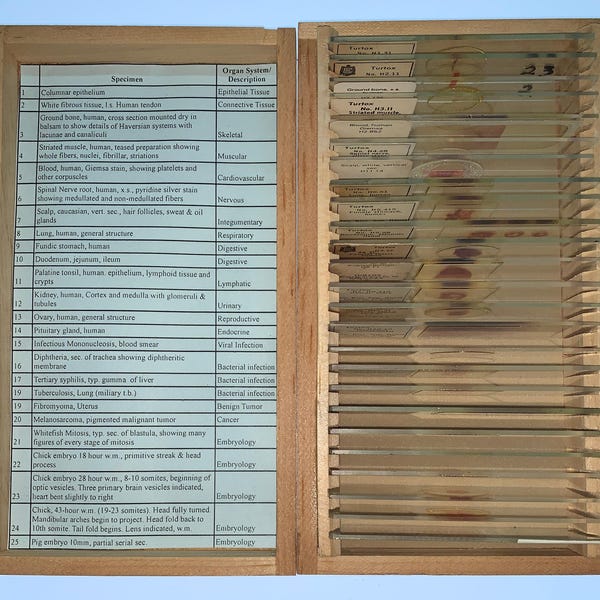 Specimen Organ System/ Description
1 Columnar epithelium Epithelial Tissue
2 White fibrous tissue, l.s. Human tendon Connective Tissue
3 Ground bone, human, cross section mounted dry in
balsam to show details of Haversian systems with
lacunae and canaliculi Skeletal
4 Striated muscle, human, teased preparation showing
whole fibers, nuclei, fibrillar, striations Muscular
5 Blood, human, Giemsa stain, showing platelets and
other corpuscles Cardiovascular
6 Spinal Nerve root, human, x.s., pyridine silver stain
showing medullated and non-medullated fibers Nervous
7 Scalp, caucasian, vert. sec., hair follicles, sweat & oil
glands Integumentary
8 Lung, human, general structure Respiratory
9 Fundic stomach, human Digestive
10 Duodenum, jejunum, ileum Digestive
11 Palatine tonsil, human. epithelium, lymphoid tissue and
crypts Lymphatic
12 Kidney, human, Cortex and medulla with glomeruli &
tubules Urinary
13 Ovary, human, general structure Reproductive
14 Pituitary gland, human Endocrine
15 Infectious Mononucleosis, blood smear Viral Infection
16 Diphtheria, sec. of trachea showing diphtheritic
membrane Bacterial infection
17 Tertiary syphilis, typ. gumma of liver Bacterial infection
19 Tuberculosis, Lung (miliary t.b.) Bacterial infection
19 Fibromyoma, Uterus Benign Tumor
20 Melanosarcoma, pigmented malignant tumor Cancer
21 Whitefish Mitosis, typ. sec. of blastula, showing many
figures of every stage of mitosis Embryology
22 Chick embryo 18 hour w.m., primitive streak & head
process Embryology
23 Chick embryo 28 hour w.m., 8-10 somites, beginning of
optic vesicles. Three primary brain vesicles indicated,
heart bent slightly to right Embryology
24 Chick, 43-hour w.m. (19-23 somites). Head fully turned.
Mandibular arches begin to project. Head fold back to
10th somite. Tail fold begins. Lens indicated, w.m. Embryology
25 Pig embryo 10mm, partial serial sec. Embryology
Turtox
No. H1.41
Turtox
No. H2.11
23
Ground bone, x.s.
2
Turtox
No. H3.11
Striated muscle,
Blood, human
Giemsa
H2.852
Turtox
Scalp, white, vertical
sec
Turtox
Turtox
Turtox